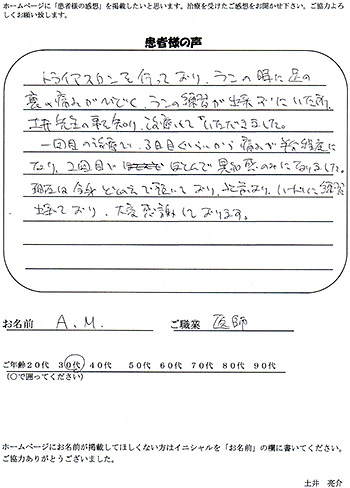 ホームページに「患者様の感想」を掲載したいと思います。治療を受けたご感想をお聞かせ下さい。ご協力よろ
しくお願い致します。
患者様の声
トライアスロンを行っており、ランの時に足の
裏の痛みがひどく、ランの練習が出来ずにいた所、
土井先生の事を知り、治療していただきました。
一回目の治療で、3日目ぐらいから痛みが半分程度に
なり、2回目でほとんど異和感のみになりました。
現在は全身
して頂いており、
練習
出来ており、大変感謝しております。
お名前 A.M. ご職業 医師
ご年齢 20代 30代 40代 50代 60代 70代 80代 90代
(〇で囲ってください)
ホームページにお名前が掲載してほしくない方はイニシャルを「お名前」の欄に書いてください。
ご協力ありがとうございました。
土井 亮介